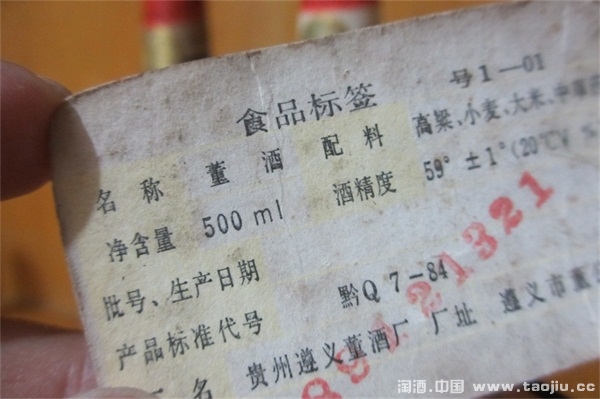 食品标签 号1—01
名称 董酒 配料 高粱、小麦、大米、中草
净含量 500ml 酒精度 59°±1°(20℃V %
批号、生产日期
产品标准代号 黔Q7-84
名 贵州遵义董酒厂 厂址 遵义市董
21321
淘酒.中国 www.taojiu.cc